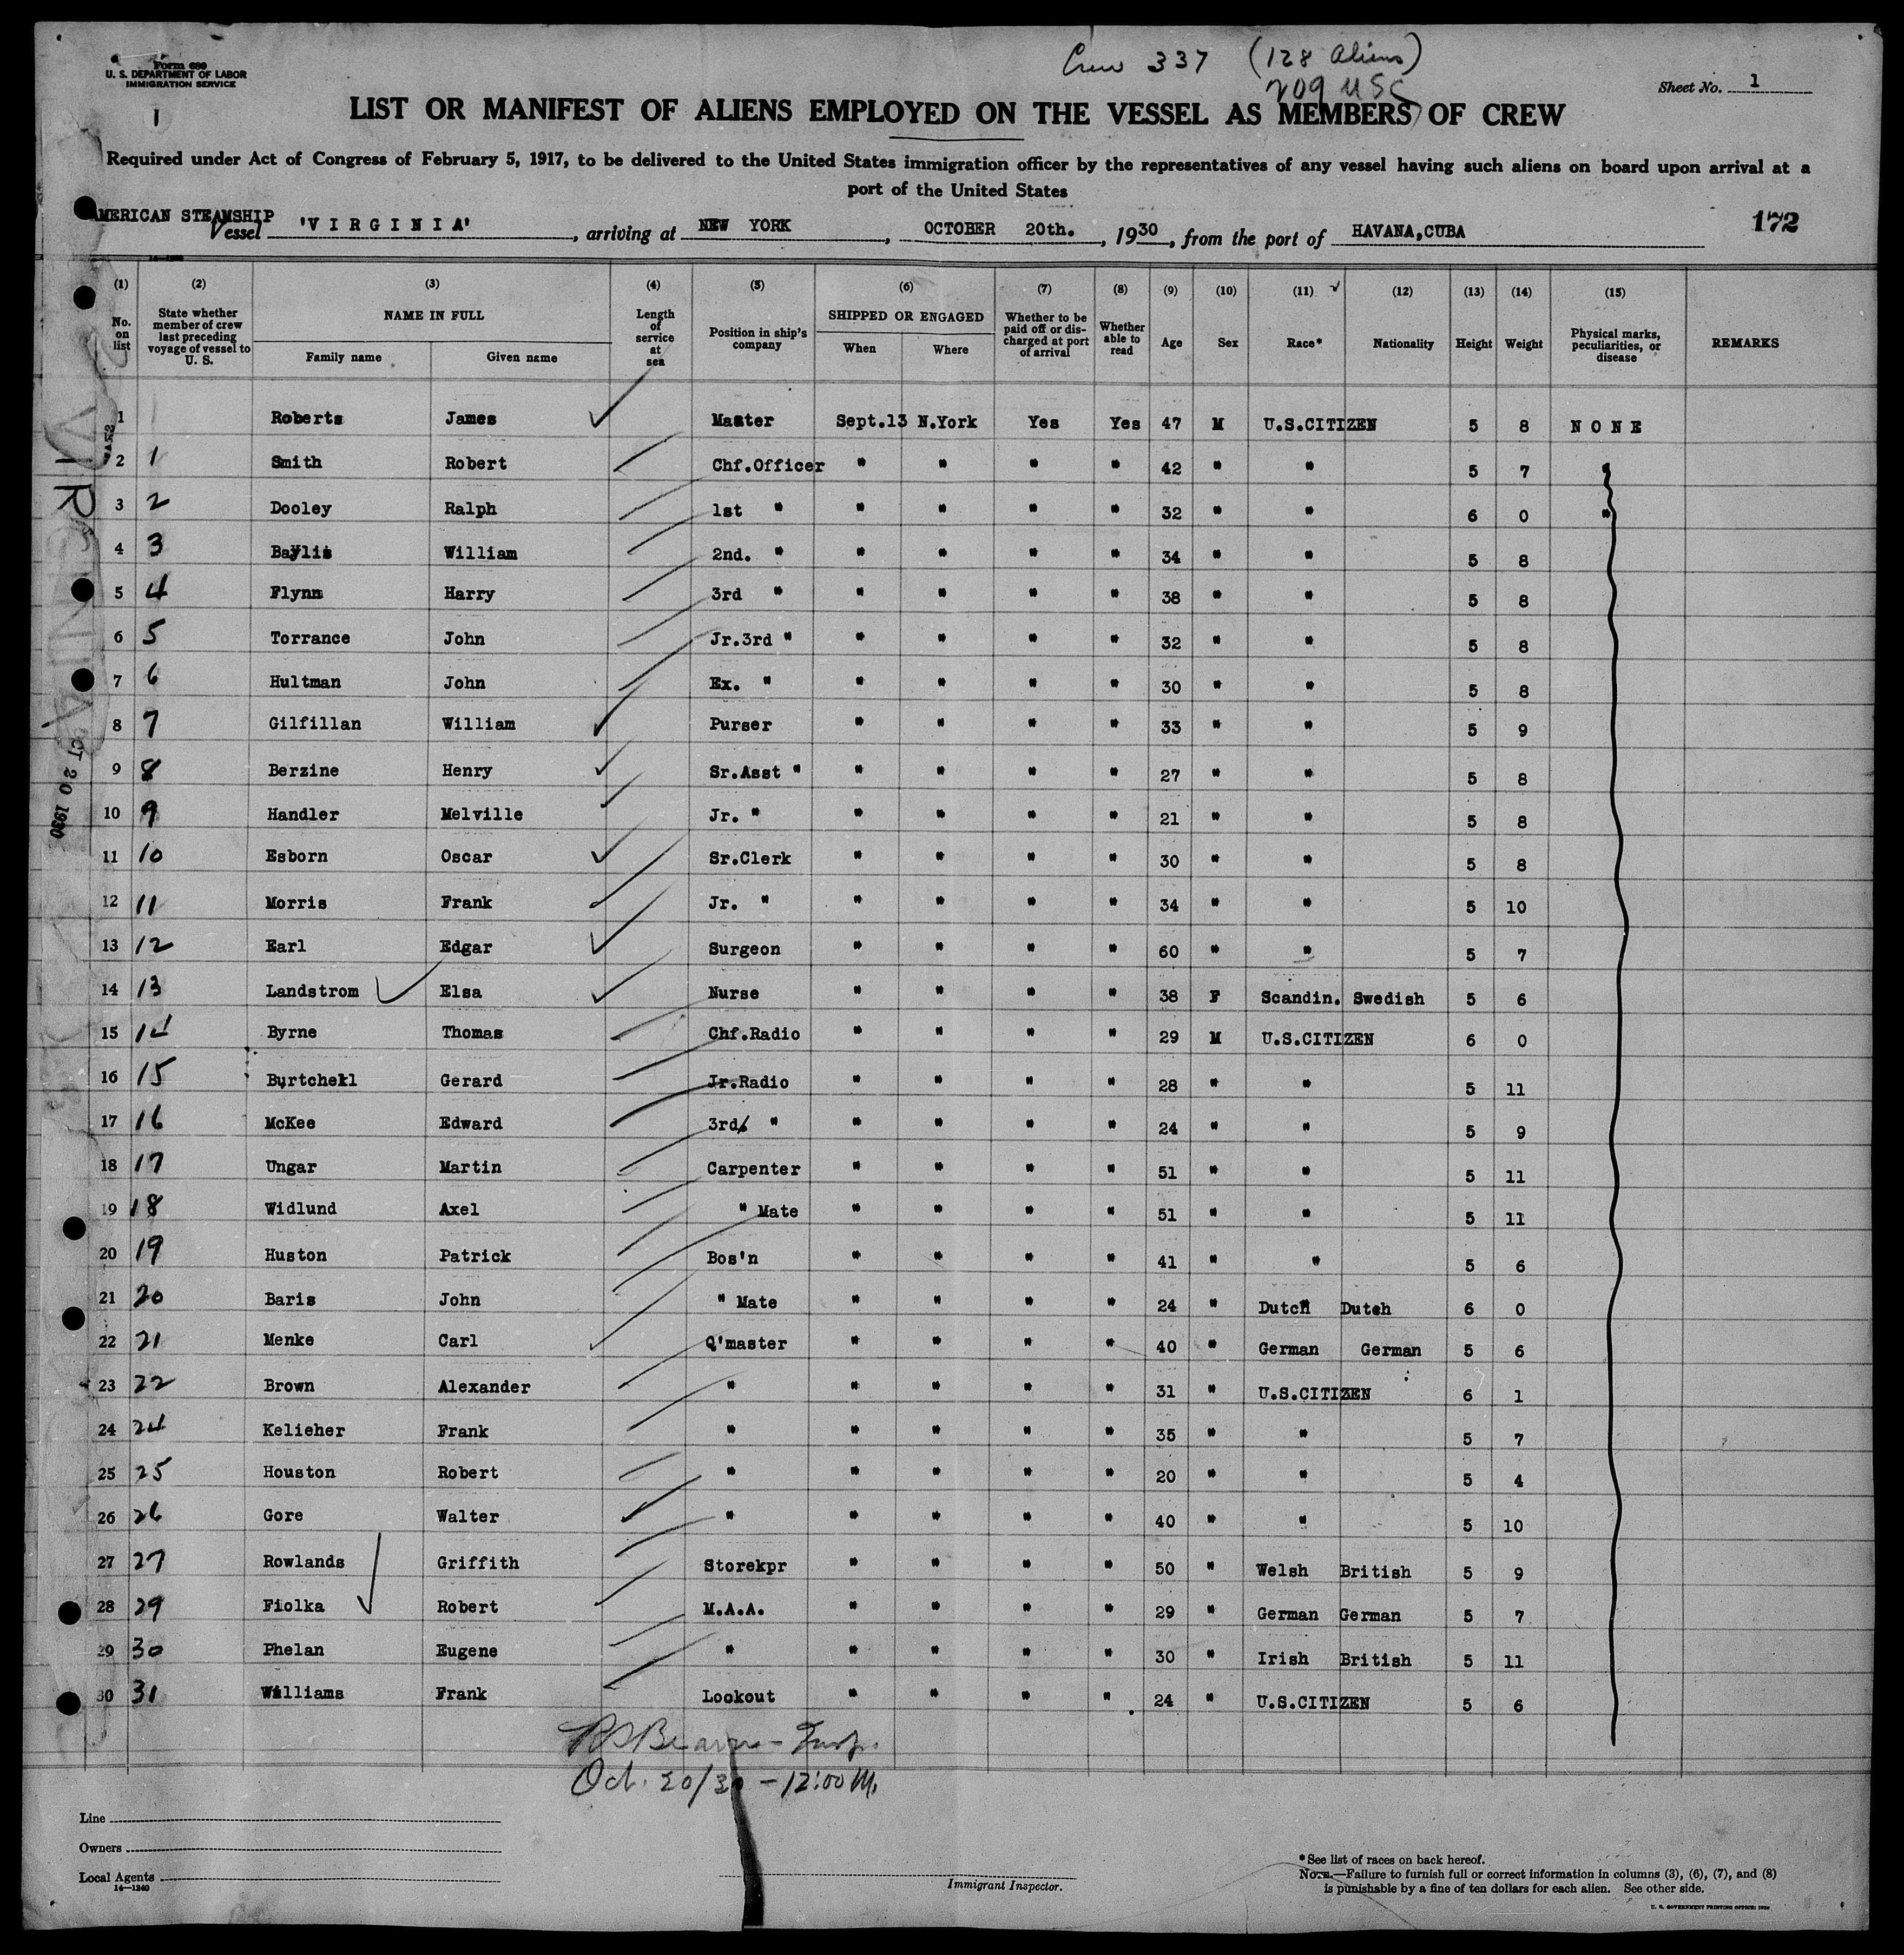 Form 680
U. S. DEPARTMENT OF LABOR
IMMIGRATION SERVICE
1
Crew 337 (128 Aliens)
209 USC
Sheet No. 1
LIST OR MANIFEST OF ALIENS EMPLOYED ON THE VESSEL AS MEMBERS OF CREW
Required under Act of Congress of February 5, 1917, to be delivered to the United States immigration officer by the representatives of any vessel having such aliens on board upon arrival at a
port of the United States
AMERICAN STEAMSHIP
Vessel 'VIRGINIA', arriving at NEW YORK, OCTOBER 20th., 1930, from the port of HAVANA,CUBA
172
(1) (2) (3) (4) (5) (6) (7) (8) (9) (10) (11) (12) (13) (14) (15)
No. on list
State whether member of crew last preceding voyage of vessel to U. S.
NAME IN FULL
Family name Given name
Length of service at sea
Position in ship's company
SHIPPED OR ENGAGED
When Where
Whether to be paid off or discharged at port of arrival
Whether able to read
Age Sex Race* Nationality Height Weight
Physical marks, peculiarities, or disease
REMARKS
1 Roberts James Master Sept.13 N.York Yes Yes 47 M U.S.CITIZEN 5 8 NONE
2 1 Smith Robert Chf.Officer " " " " 42 " " 5 7 "
3 2 Dooley Ralph 1st " " " " " 32 " " 6 0 "
4 3 Baylis William 2nd. " " " " " 34 " " 5 8
5 4 Flynn Harry 3rd " " " " " 38 " " 5 8
6 5 Torrance John Jr.3rd " " " " " 32 " " 5 8
7 6 Hultman John Ex. " " " " " 30 " " 5 8
8 7 Gilfillan William Purser " " " " 33 " " 5 9
9 8 Berzine Henry Sr.Asst " " " " " 27 " " 5 8
10 9 Handler Melville Jr. " " " " " 21 " " 5 8
11 10 Esborn Oscar Sr.Clerk " " " " 30 " " 5 8
12 11 Morris Frank Jr. " " " " " 34 " " 5 10
13 12 Earl Edgar Surgeon " " " " 60 " " 5 7
14 13 Landstrom Elsa Nurse " " " " 38 F Scandin. Swedish 5 6
15 14 Byrne Thomas Chf.Radio " " " " 29 M U.S.CITIZEN 6 0
16 15 Burtchell Gerard Jr.Radio " " " " 28 " " 5 11
17 16 McKee Edward 3rd. " " " " " 24 " " 5 9
18 17 Ungar Martin Carpenter " " " " 51 " " 5 11
19 18 Widlund Axel " Mate " " " " 51 " " 5 11
20 19 Huston Patrick Bos'n " " " " 41 " " 5 6
21 20 Baris John " Mate " " " " 24 " Dutch Dutch 6 0
22 21 Menke Carl Q'master " " " " 40 " German German 5 6
23 22 Brown Alexander " " " " " 31 " U.S.CITIZEN 6 1
24 24 Kelieher Frank " " " " " 35 " " 5 7
25 25 Houston Robert " " " " " 20 " " 5 4
26 26 Gore Walter " " " " " 40 " " 5 10
27 27 Rowlands Griffith Storekpr " " " " 50 " Welsh British 5 9
28 29 Fiolka Robert M.A.A. " " " " 29 " German German 5 7
29 30 Phelan Eugene " " " " " 30 " Irish British 5 11
30 31 Williams Frank Lookout " " " " 24 " U.S.CITIZEN 5 6
VIRGINIA
OCT 20 1930
Oct. 20/30 - 12:00 M.
Line
Owners
Local Agents
14—1240
Immigrant Inspector.
* See list of races on back hereof.
NOTE.—Failure to furnish full or correct information in columns (3), (6), (7), and (8)
is punishable by a fine of ten dollars for each alien. See other side.